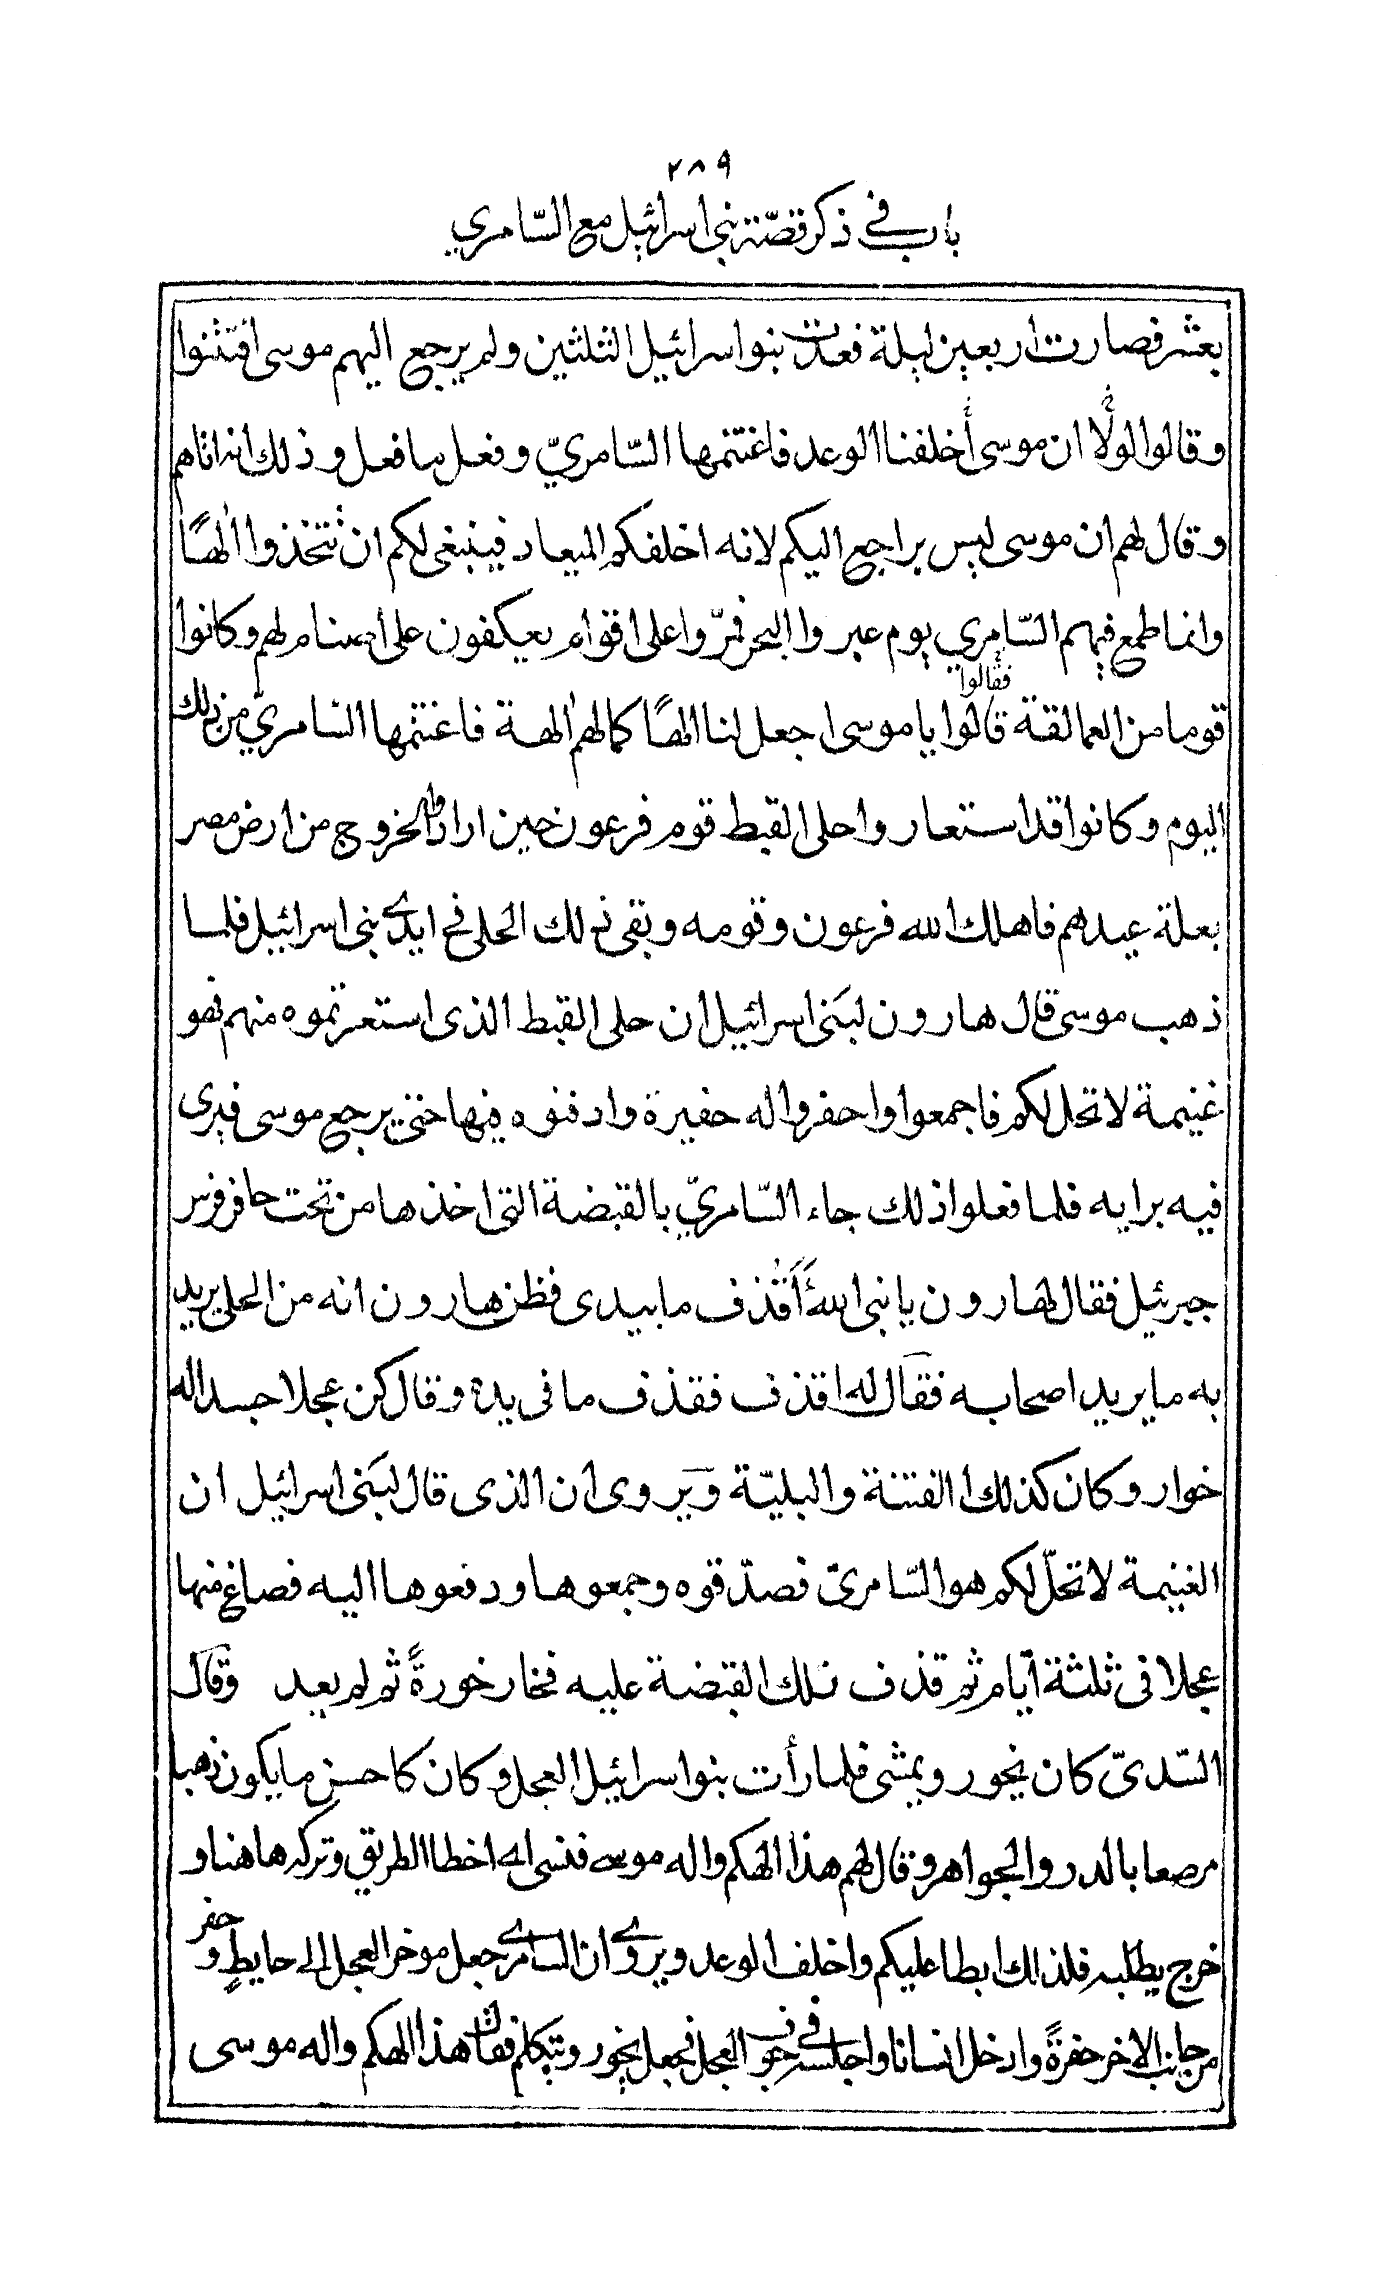 ٢٨٩
باب في ذكر قصّة بني اسرائيل مع السّامري
بعشر فصارت اربعين ليلة فعدت بنو اسرائيل الثلثين ولم يرجع اليهم موسى افتتنوا
وقالوا لولا ان موسى أخلفنا الوعد فاغتنمها السّامريّ وفعل ما فعل وذلك انه اتاهم
وقال لهم ان موسى ليس براجع اليكم لانه اخلفكم الميعاد فينبغى لكم ان تتخذوا الٰهًا
وانما طمع فيهم السّامري يوم عبروا البحر فمرّوا على اقوام يعكفون على اصنام لهم وكانوا
فقالوا
قوما من العمالقة قالوا يا موسى اجعل لنا الهًا كما لهم الٰهة فاغتنمها السّامريّ من ذلك
اليوم وكانوا قد استعاروا حلى القبط قوم فرعون حين ارادوا الخروج من ارض مصر
بعلة عيدهم فاهلك الله فرعون وقومه وبقى ذلك الحلى في ايدي بنى اسرائيل فلما
ذهب موسى قال هارون لبَنى اسرائيل ان حلى القبط الذى استعرتموه منهم فهو
غنيمة لا تحل لكم فاجمعوا واحفروا له حفيرة وادفنوه فيها حتى يرجع موسى فيرى
فيه برايه فلما فعلوا ذلك جاء السّامريّ بالقبضة التى اخذها من تحت حافر فرس
جبرئيل فقال لهارون يا نبى الله أَأَقذف ما بيدى فظن هارون انه من الحلى يريد
به ما يريد اصحابه فقال له اقذف فقذف ما فى يده وقال كن عجلا جسدا له
خوار وكان كذلك الفتنة والبليّة وَيروى ان الذى قال لبَنى اسرائيل ان
الغنيمة لا تحلّ لكم هو السّامرىّ فصدّقوه وجمعوها ودفعوها اليه فصاغ منها
عجلا فى ثلثة أيّام ثم قذف تلك القبضة عليه فخار خورةً ثم لم يعد وقال
السّدىّ كان يخور ويمشى فلما رأت بنو اسرائيل العجل وكان كاحسن ما يكون ذهبا
مرصعا بالدر والجواهر وقال لهم هذا الهكم واله موسى فنسى اى اخطا الطريق وتركه هاهنا و
خرج يطلبه فلذلك ابطا عليكم واخلف الوعد ويروي ان السامري جعل موخر العجل الى حايطٍ وحفر
من جانب الاخر حفرةً وادخل انسانا واجلسه في جوف العجل فجعل يخور ويتكلم فقال هذا الهكم واله موسى